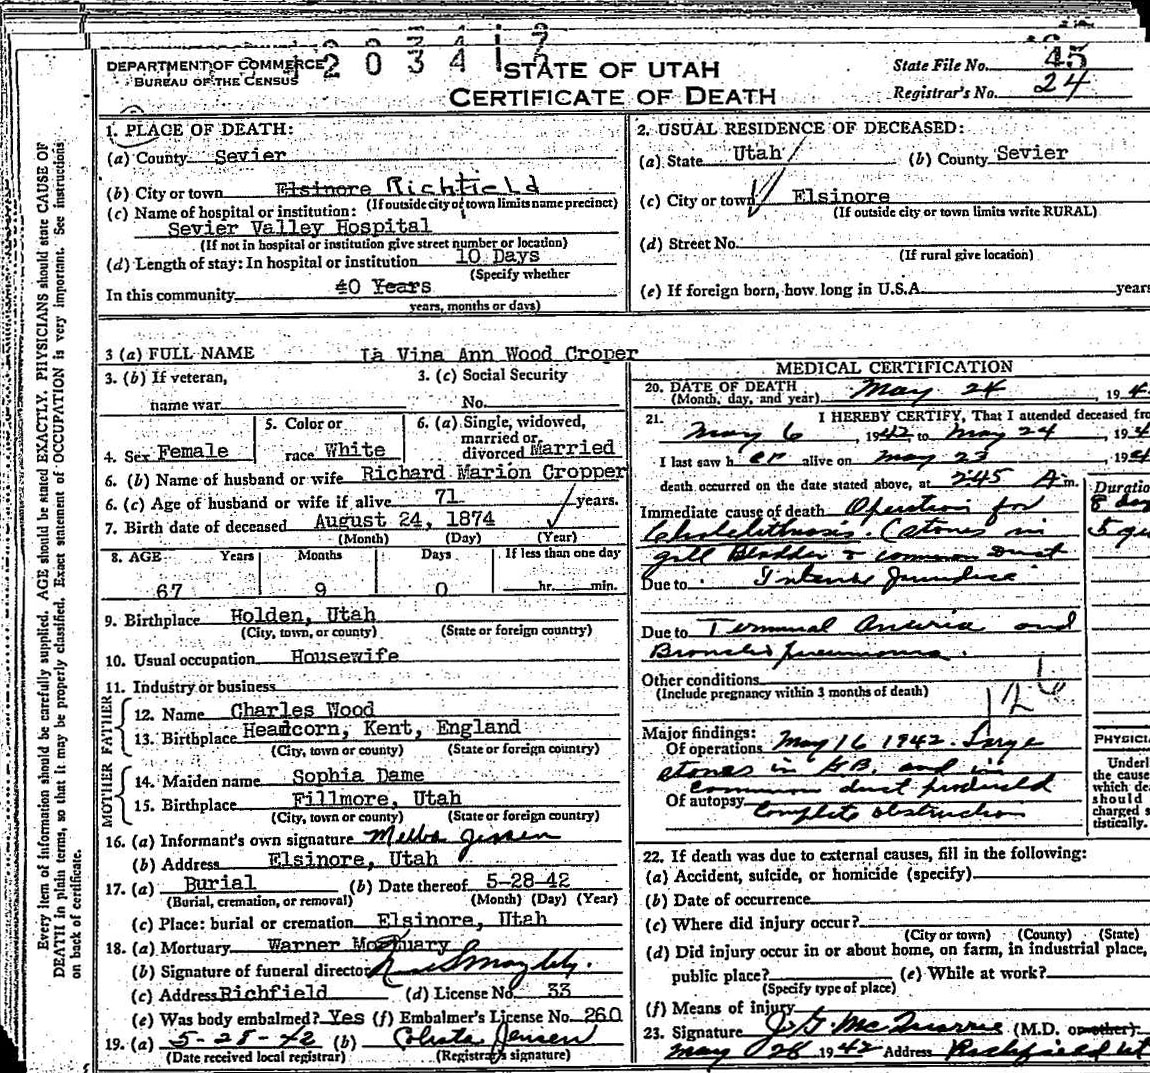 DEPARTMENT OF COMMERCE
BUREAU OF THE CENSUS
2 0 3 4 1
STATE OF UTAH
CERTIFICATE OF DEATH
State File No. 45
Registrar's No. 24
1. PLACE OF DEATH:
(a) County Sevier
(b) City or town Elsinore Richfield
(If outside city or town limits name precinct)
(c) Name of hospital or institution:
Sevier Valley Hospital
(If not in hospital or institution give street number or location)
(d) Length of stay: In hospital or institution 10 Days
(Specify whether
In this community 40 Years
years, months or days)
2. USUAL RESIDENCE OF DECEASED:
(a) State Utah (b) County Sevier
(c) City or town Elsinore
(If outside city or town limits write RURAL)
(d) Street No.
(If rural give location)
(e) If foreign born, how long in U.S.A. years
3 (a) FULL NAME La Vina Ann Wood Croper
3. (b) If veteran,
name war
3. (c) Social Security
No.
4. Sex Female
5. Color or
race White
6. (a) Single, widowed,
married or
divorced Married
6. (b) Name of husband or wife Richard Marion Cropper
6. (c) Age of husband or wife if alive 71 years.
7. Birth date of deceased August 24, 1874
(Month) (Day) (Year)
8. AGE Years Months Days If less than one day
67 9 0 hr. min.
9. Birthplace Holden, Utah
(City, town, or county) (State or foreign country)
10. Usual occupation Housewife
11. Industry or business
FATHER
12. Name Charles Wood
13. Birthplace Headcorn, Kent, England
(City, town or county) (State or foreign country)
MOTHER
14. Maiden name Sophia Dame
15. Birthplace Fillmore, Utah
(City, town or county) (State or foreign country)
16. (a) Informant's own signature Melba Jensen
(b) Address Elsinore, Utah
17. (a) Burial (b) Date thereof 5-28-42
(Burial, cremation, or removal) (Month) (Day) (Year)
(c) Place: burial or cremation Elsinore, Utah
18. (a) Mortuary Warner Mortuary
(b) Signature of funeral director
(c) Address Richfield (d) License No. 33
(e) Was body embalmed? Yes (f) Embalmer's License No. 260
19. (a) 5-28-42 (b) Jensen
(Date received local registrar) (Registrar's signature)
MEDICAL CERTIFICATION
20. DATE OF DEATH May 24 194
(Month, day, and year)
21. I HEREBY CERTIFY, That I attended deceased fro
May 6, 1942 to May 24, 194
I last saw her alive on May 23 194
death occurred on the date stated above, at 2:45 A m.
Duratio
Immediate cause of death Operation for 8 day
Cholelithiasis. (stones in 5 ye
gall Bladder & common Duct
Due to Intense Jaundice
Due to Terminal and
Broncho pneumonia.
Other conditions
(Include pregnancy within 3 months of death)
Major findings:
Of operations May 16 1942. Large
stones in G.B. and in
common duct produced
Of autopsy complete obstruction
PHYSICIA
Underl
the cause
which de
should
charged s
tistically.
22. If death was due to external causes, fill in the following:
(a) Accident, suicide, or homicide (specify)
(b) Date of occurrence
(c) Where did injury occur?
(City or town) (County) (State)
(d) Did injury occur in or about home, on farm, in industrial place,
public place? (e) While at work?
(Specify type of place)
(f) Means of injury
23. Signature J. G. McQuarrie (M.D. or other)
May 28 1942 Address Richfield Ut
Every item of information should be carefully supplied. AGE should be stated EXACTLY. PHYSICIANS should state CAUSE OF
DEATH in plain terms, so that it may be properly classified. Exact statement of OCCUPATION is very important. See instructions
on back of certificate.